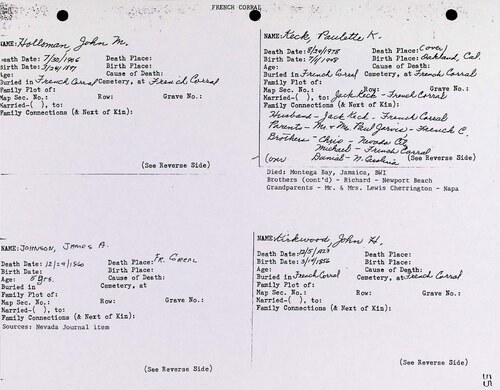 FRENCH CORRAL
NAME: Holloman, John M.
Death Date: 7/30/1906 Death Place:
Birth Date: Birth Place:
Age: Cause of Death:
Buried in French Corral Cemetery, at French Corral
Family Plot of:
Map Sec. No.: Row: Grave No.:
Married-( ), to:
Family Connections (& Next of Kin):
(See Reverse Side)
NAME: Keck, Paulette K.
Death Date: 8/24/1978 Death Place: (over)
Birth Date: 7/1/1948 Birth Place: Oakland, Cal.
Age: Cause of Death:
Buried in French Corral Cemetery, at French Corral
Family Plot of:
Map Sec. No.: Row: Grave No.:
Married-( ), to: Jack Keck - French Corral
Family Connections (& Next of Kin):
Husband - Jack Keck - French Corral
Parents - Mr & Mr. Paul Jarvis - French C.
Brothers - Chris - Nevada City
Michael - French Corral
(over) Daniel - N. Carolina (See Reverse Side)
Died: Montega Bay, Jamaica, BWI
Brothers (cont'd) - Richard - Newport Beach
Grandparents - Mr. & Mrs. Lewis Cherrington - Napa
NAME: JOHNSON, JAMES A.
Death Date: 12/29/1860 Death Place: FR. CORRAL
Birth Date: Birth Place:
Age: 5 yrs. Cause of Death:
Buried in Cemetery, at
Family Plot of:
Map Sec. No.: Row: Grave No.:
Married-( ), to:
Family Connections (& Next of Kin):
Sources: Nevada Journal item
(See Reverse Side)
NAME: Kirkwood, John H.
Death Date: 12/5/1923 Death Place:
Birth Date: 3/19/1856 Birth Place:
Age: Cause of Death:
Buried in French Corral Cemetery, at French Corral
Family Plot of:
Map Sec. No.: Row: Grave No.:
Married-( ), to:
Family Connections (& Next of Kin):
(See Reverse Side)